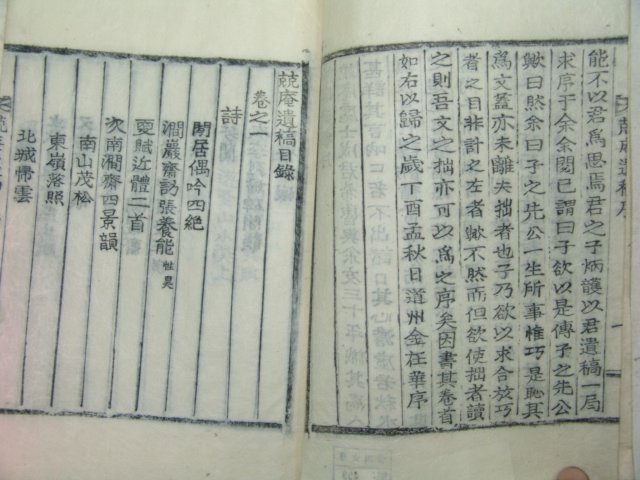 能不以君爲思焉君之子炳護以君遺稿一局
求序于余余閱已謂曰子欲以是傳子之先公
歟曰然余曰子之先公一生所事惟巧是恥其
爲文蓋亦未離夫拙者也子乃欲以求合放巧
者之目非計之左者歟不然而但欲使拙者讀
之則吾文之拙亦可以爲之序矣因書其卷首
如右以歸之歲丁酉孟秋日道州金在華序
兢庵遺稿序
兢庵遺稿目錄
卷之一
詩
閒居偶吟四絶
澗巖齋訪張養能
更賦近體二首
次南澗齋四景韻
南山茂松
東嶺落照
北城歸雲